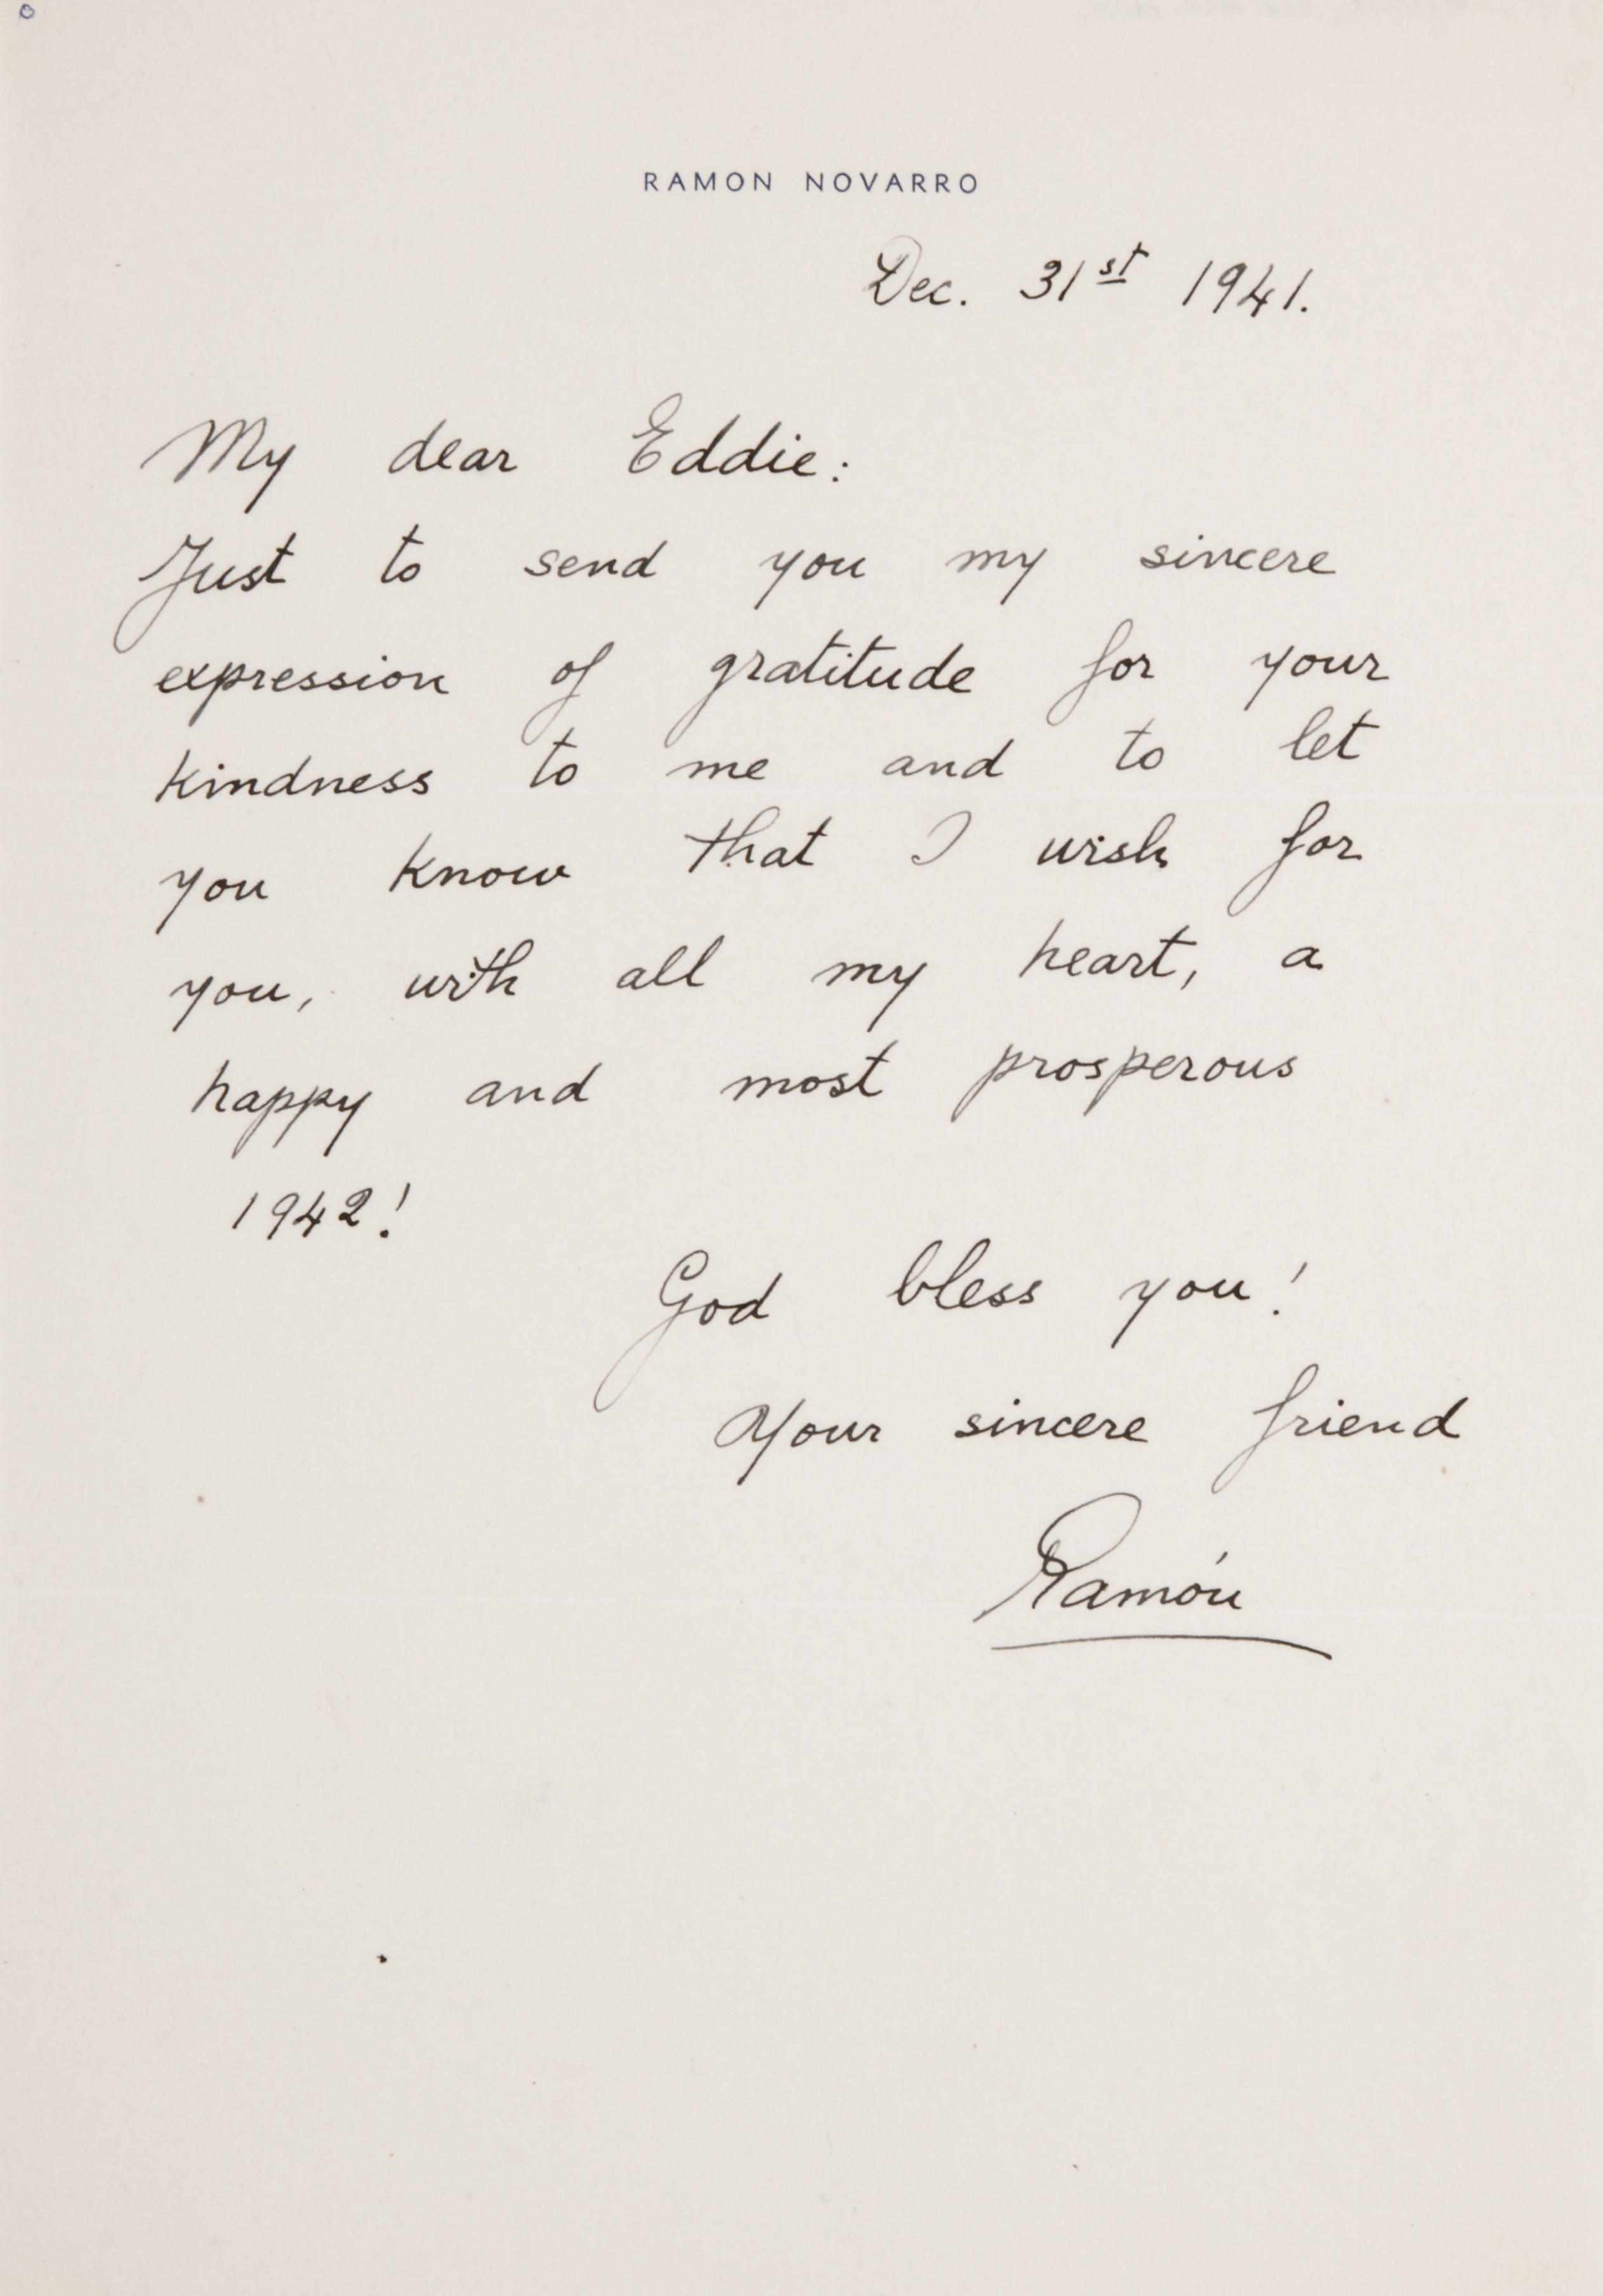 RAMON NOVARRO
Dec. 31st 1941.
My dear Eddie:
Just to send you my sincere
expression of gratitude for your
kindness to me and to let
you know that I wish for
you, with all my heart, a
happy and most prosperous
1942!
God bless you!
Your sincere friend
Ramón